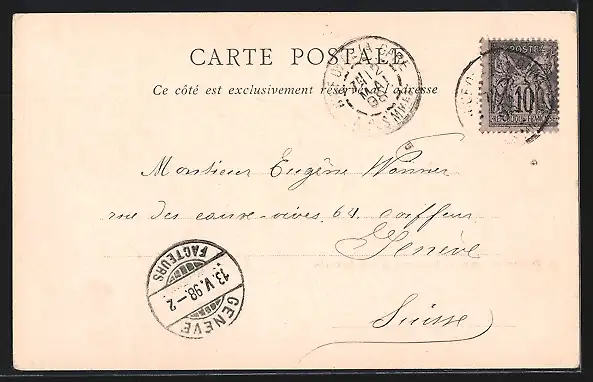 CARTE POSTALE
Ce côté est exclusivement réservé à l'adresse
POSTE
10
Monsieur Eugène Wanner
rue des eaux-vives 64. coiffeur
Genève
Suisse
FACTEURS
13.V.98.-2
GENÈVE